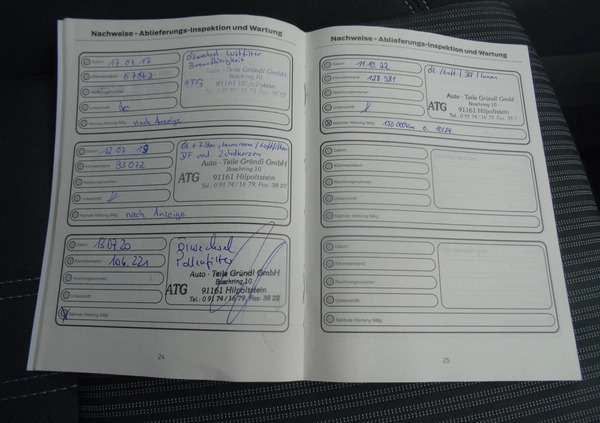 Nachweise - Ablieferungs-Inspektion und Wartung
Datum: 17.07.17
Kilometerstand: 67142
Rechnungsnummer:
Unterschrift:
Nächste Wartung fällig: nach Anzeige
Ölwechsel Luftfilter
Bremsflüssigkeit
Auto - Teile Gründl GmbH
Boschring 10
ATG 91161 Hilpoltstein
Datum: 12.07 19
Kilometerstand: 93072
Rechnungsnummer:
Unterschrift:
Nächste Wartung fällig: nach Anzeige
Öl + Filter, Innenraum / Luftfilter
BF und Zündkerzen
Auto - Teile Gründl GmbH
Boschring 10
ATG 91161 Hilpoltstein
Tel.: 0 91 74 / 16 79, Fax: 38 22
Datum: 15.07.20
Kilometerstand: 104.221
Rechnungsnummer:
Unterschrift:
Nächste Wartung fällig:
Ölwechsel
Pollenfilter
Auto - Teile Gründl GmbH
Boschring 10
ATG 91161 Hilpoltstein
Tel.: 0 91 74 / 16 79, Fax: 38 22
24
Nachweise - Ablieferungs-Inspektion und Wartung
Datum: 11.10.22
Kilometerstand: 128 381
Rechnungsnummer:
Unterschrift:
Nächste Wartung fällig: 150000km o. 10/24
Öl / Luft / BF / Innen
Auto - Teile Gründl GmbH
Boschring 10
ATG 91161 Hilpoltstein
Tel.: 0 91 74 / 16 79, Fax: 38
Datum:
Kilometerstand:
Rechnungsnummer:
Unterschrift:
Nächste Wartung fällig:
Datum:
Kilometerstand:
Rechnungsnummer:
Unterschrift:
Nächste Wartung fällig:
25